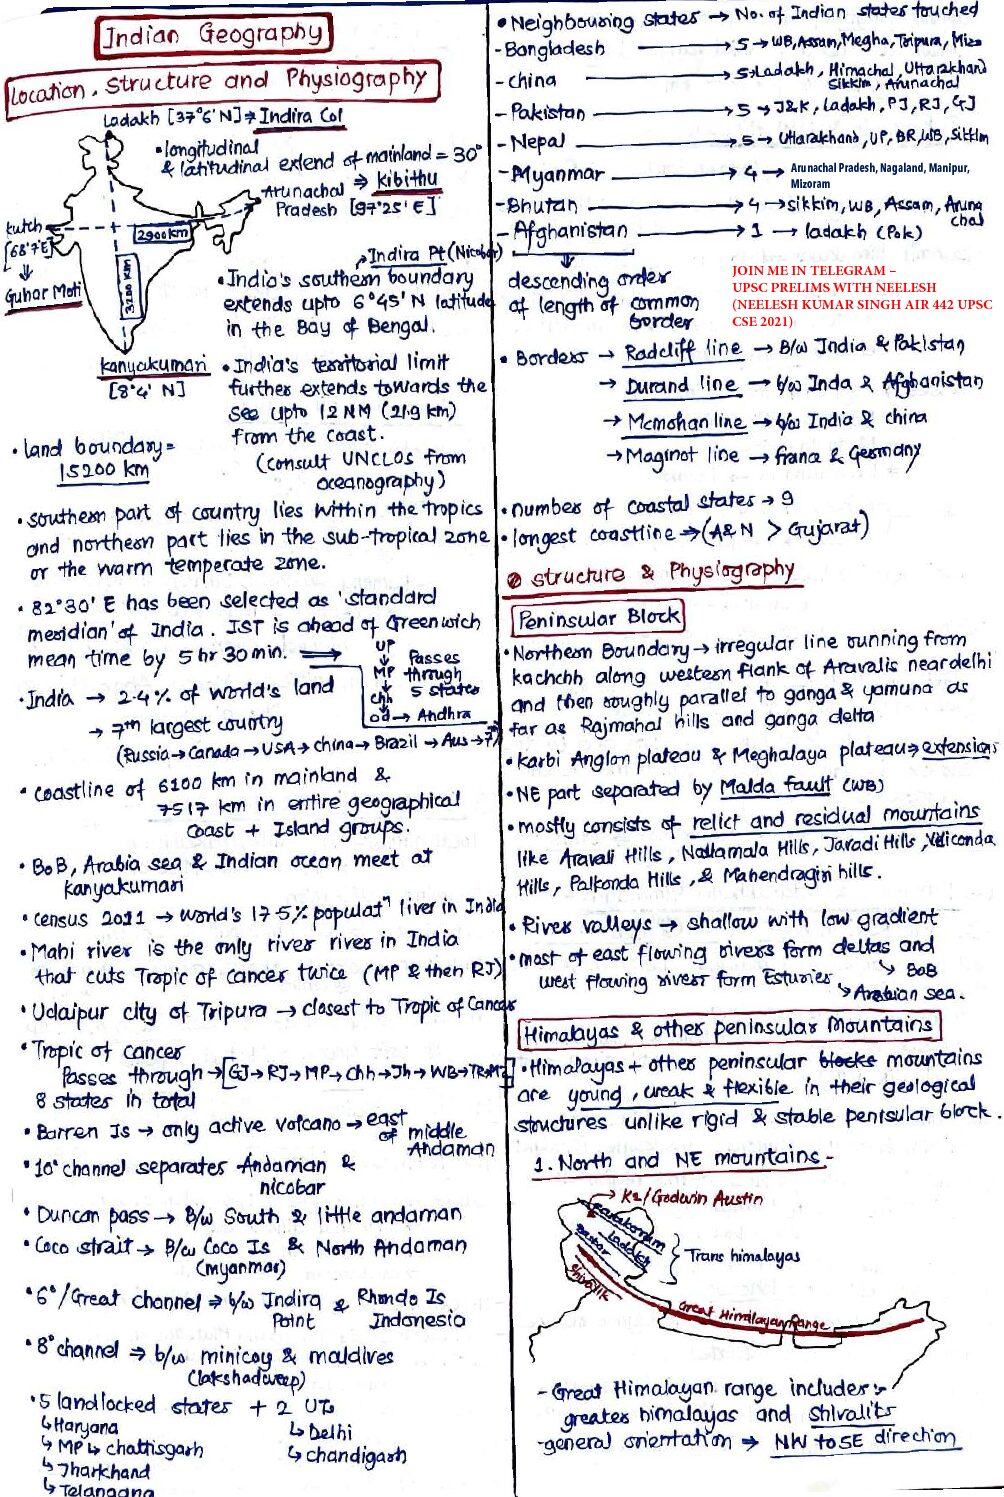 Indian Geography
Location, Structure and Physiography
Ladakh [37°6' N] → Indira Col
• longitudinal
& latitudinal extend of mainland = 30°
⇒ Kibithu
Arunachal
Pradesh [97°25' E]
Kutch
[68°7'E]
Guhar Moti
2900km
3200 km
Kanyakumari
[8°4' N]
Indira Pt (Nicobar)
• India's southern boundary
extends upto 6°45' N latitude
in the Bay of Bengal.
• India's territorial limit
further extends towards the
see upto 12 NM (21.9 km)
from the coast.
(consult UNCLOS from
oceanography)
• land boundary =
15200 km
• southern part of country lies within the tropics
and northern part lies in the sub-tropical zone
or the warm temperate zone.
• 82°30' E has been selected as 'standard
meridian' of India. IST is ahead of Greenwich
mean time by 5 hr 30 min. ⇒
UP
↓
MP
↓
Chh
↓
Od → Andhra
Passes
through
5 states
• India → 2.4% of world's land
→ 7th largest country
(Russia → Canada → USA → china → Brazil → Aus → 7)
• coastline of 6100 km in mainland &
7517 km in entire geographical
coast + Island groups.
• BoB, Arabia sea & Indian ocean meet at
Kanyakumari
• census 2011 → world's 17.5% populatn lives in India
• Mahi river is the only river river in India
that cuts Tropic of cancer twice (MP & then RJ)
• Udaipur city of Tripura → closest to Tropic of Cancer
• Tropic of cancer
passes through → [GJ → RJ → MP → Chh → Jh → WB → TR → MZ]
8 states in total
• Barren Is → only active volcano → east
of middle
Andaman
• 10° channel separates Andaman &
nicobar
• Duncan pass → B/w South & little andaman
• Coco strait → B/w Coco Is & North Andaman
(myanmar)
• 6°/Great channel ⇒ b/w Indira & Rhondo Is
Point Indonesia
• 8° channel ⇒ b/w minicoy & maldives
(lakshadweep)
• 5 landlocked states + 2 UTs
↳ Haryana ↳ Delhi
↳ MP ↳ chattisgarh ↳ chandigarh
↳ Jharkhand
↳ Telangana
• Neighbouring states → No. of Indian states touched
- Bangladesh → 5 → WB, Assam, Megha, Tripura, Mizo
- china → 5 → Ladakh, Himachal, Uttarakhand
Sikkim, Arunachal
- Pakistan → 5 → J&K, Ladakh, PJ, RJ, GJ
- Nepal → 5 → Uttarakhand, UP, BR, WB, Sikkim
- Myanmar → 4 → Arunachal Pradesh, Nagaland, Manipur,
Mizoram
- Bhutan → 4 → sikkim, WB, Assam, Aruna
chal
- Afghanistan → 1 → ladakh (Pok)
descending order
of length of common
border
JOIN ME IN TELEGRAM –
UPSC PRELIMS WITH NEELESH
(NEELESH KUMAR SINGH AIR 442 UPSC
CSE 2021)
• Borders → Radcliff line → B/w India & Pakistan
→ Durand line → b/w Inda & Afghanistan
→ Mcmohan line → b/w India & china
→ Maginot line → franc & Germany
• number of coastal states → 9
• longest coastline → (A&N > Gujarat)
structure & Physiography
Peninsular Block
• Northern Boundary → irregular line running from
kachchh along western flank of Aravalis near delhi
and then roughly parallel to ganga & yamuna as
far as Rajmahal hills and ganga delta
• Karbi Anglon plateau & Meghalaya plateau → extensions
• NE part separated by Malda fault (WB)
• mostly consists of relict and residual mountains
like Aravali Hills, Nallamala Hills, Javadi Hills, Veliconda
Hills, Palkonda Hills, & Mahendragiri hills.
• River valleys → shallow with low gradient
• most of east flowing rivers form deltas and
↳ BoB
west flowing rivers form Esturies
↳ Arabian sea.
Himalayas & other peninsular Mountains
• Himalayas + other peninsular blocks mountains
are young, weak & flexible in their geological
structures unlike rigid & stable penisular block.
1. North and NE mountains -
→ K2/Godwin Austin
Karakoram
Ladakh
Zaskar
Shivalik
Trans himalayas
Great Himalayan Range
- Great Himalayan range includes :-
greater himalayas and Shivaliks
- general orientation ⇒ NW to SE direction